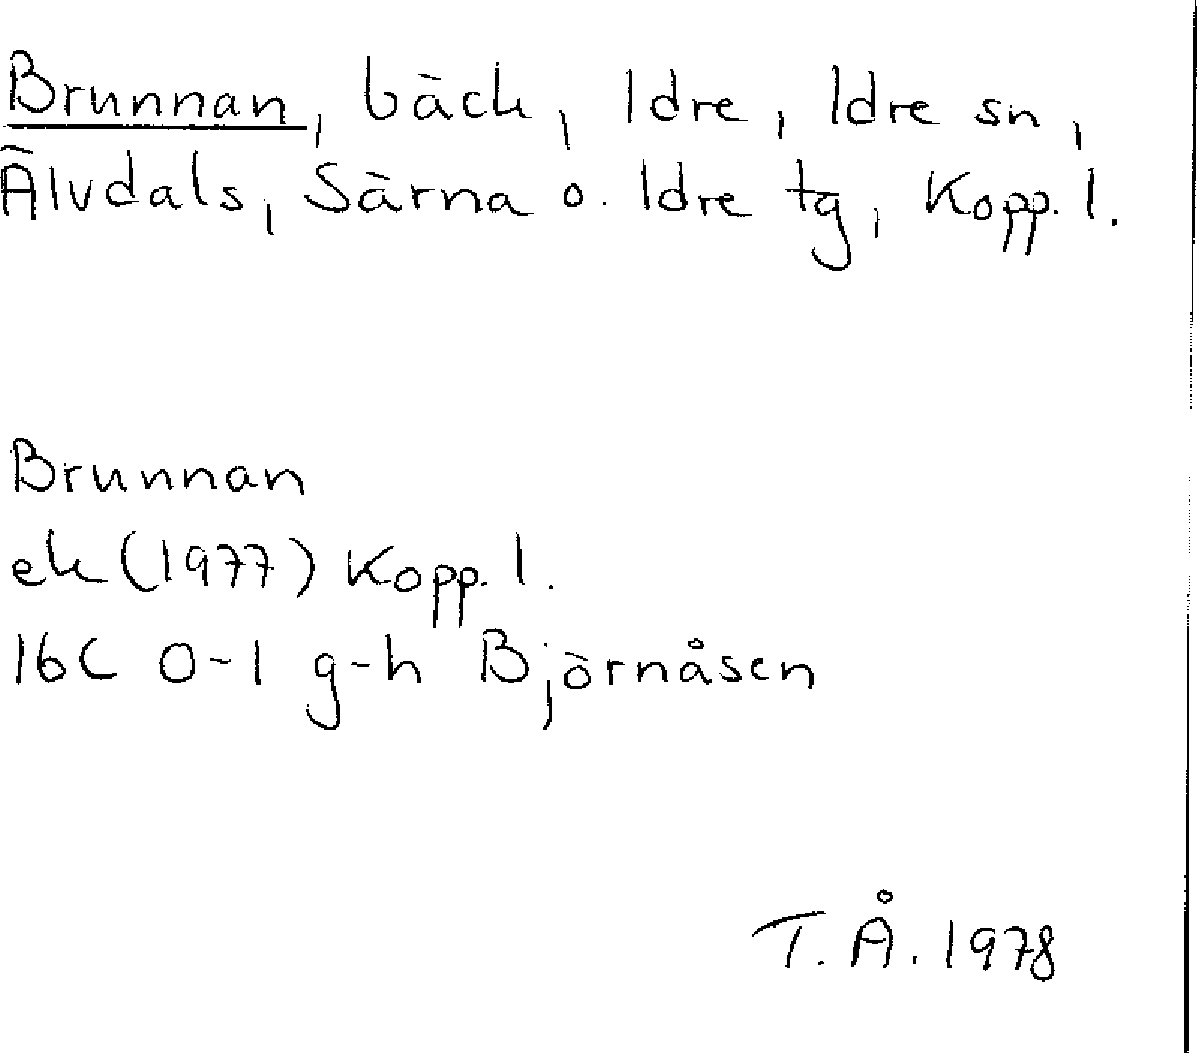 Brunnan, bäck, Idre, Idre sn,
Älvdals, Särna o. Idre tg, Kopp. l.
Brunnan
ek (1977) Kopp. l.
16C 0-1 g-h Björnåsen
T. Å. 1978